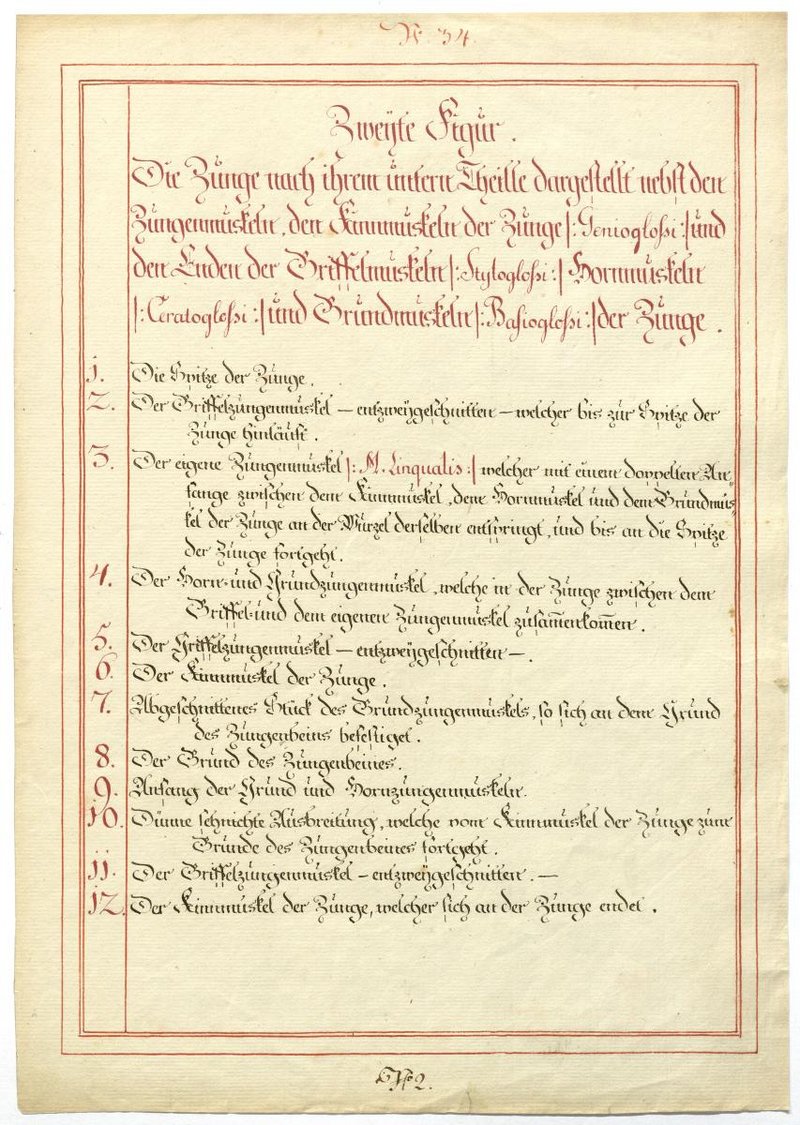 N. 34.
Zweÿte Figur.
Die Zunge nach ihrem untern Theille dargestellt nebst den
Zungenmuskeln, den Kinnmuskeln der Zunge |: Genioglossi :| und
den Enden der Griffelmuskeln |: Styloglossi :| Hornmuskeln
|: Ceratoglossi :| und Grundmuskeln |: Basioglossi :| der Zunge.
1. Die Spitze der Zunge.
2. Der Griffelzungenmuskel – entzweÿgeschnitten – welcher bis zur Spitze der
Zunge hinläuft.
3. Der eigene Zungenmuskel |: M. Lingualis :| welcher mit einem doppelten An=
fange zwischen dem Kinnmuskel, dem Hornmuskel und dem Grundmus=
kel der Zunge an der Wurzel derselben entspringt, und bis an die Spitze
der Zunge fortgeht.
4. Der Horn- und Grundzungenmuskel, welche in der Zunge zwischen dem
Griffel- und dem eigenen Zungenmuskel zusam̅enkom̅en.
5. Der Griffelzungenmuskel – entzweÿgeschnitten –.
6. Der Kinnmuskel der Zunge.
7. Abgeschnittenes Stück des Grundzungenmuskels, so sich an dem Grund
des Zungenbeins befestiget.
8. Der Grund des Zungenbeines.
9. Anfang der Grund und Hornzungenmuskeln.
10. Dünne schnichte Ausbreitung, welche vom Kinnmuskel der Zunge zum
Grunde des Zungenbeines fortgeht.
11. Der Griffelzungenmuskel – entzweÿgeschnitten. –
12. Der Kinnmuskel der Zunge, welcher sich an der Zunge endet.
No 2.